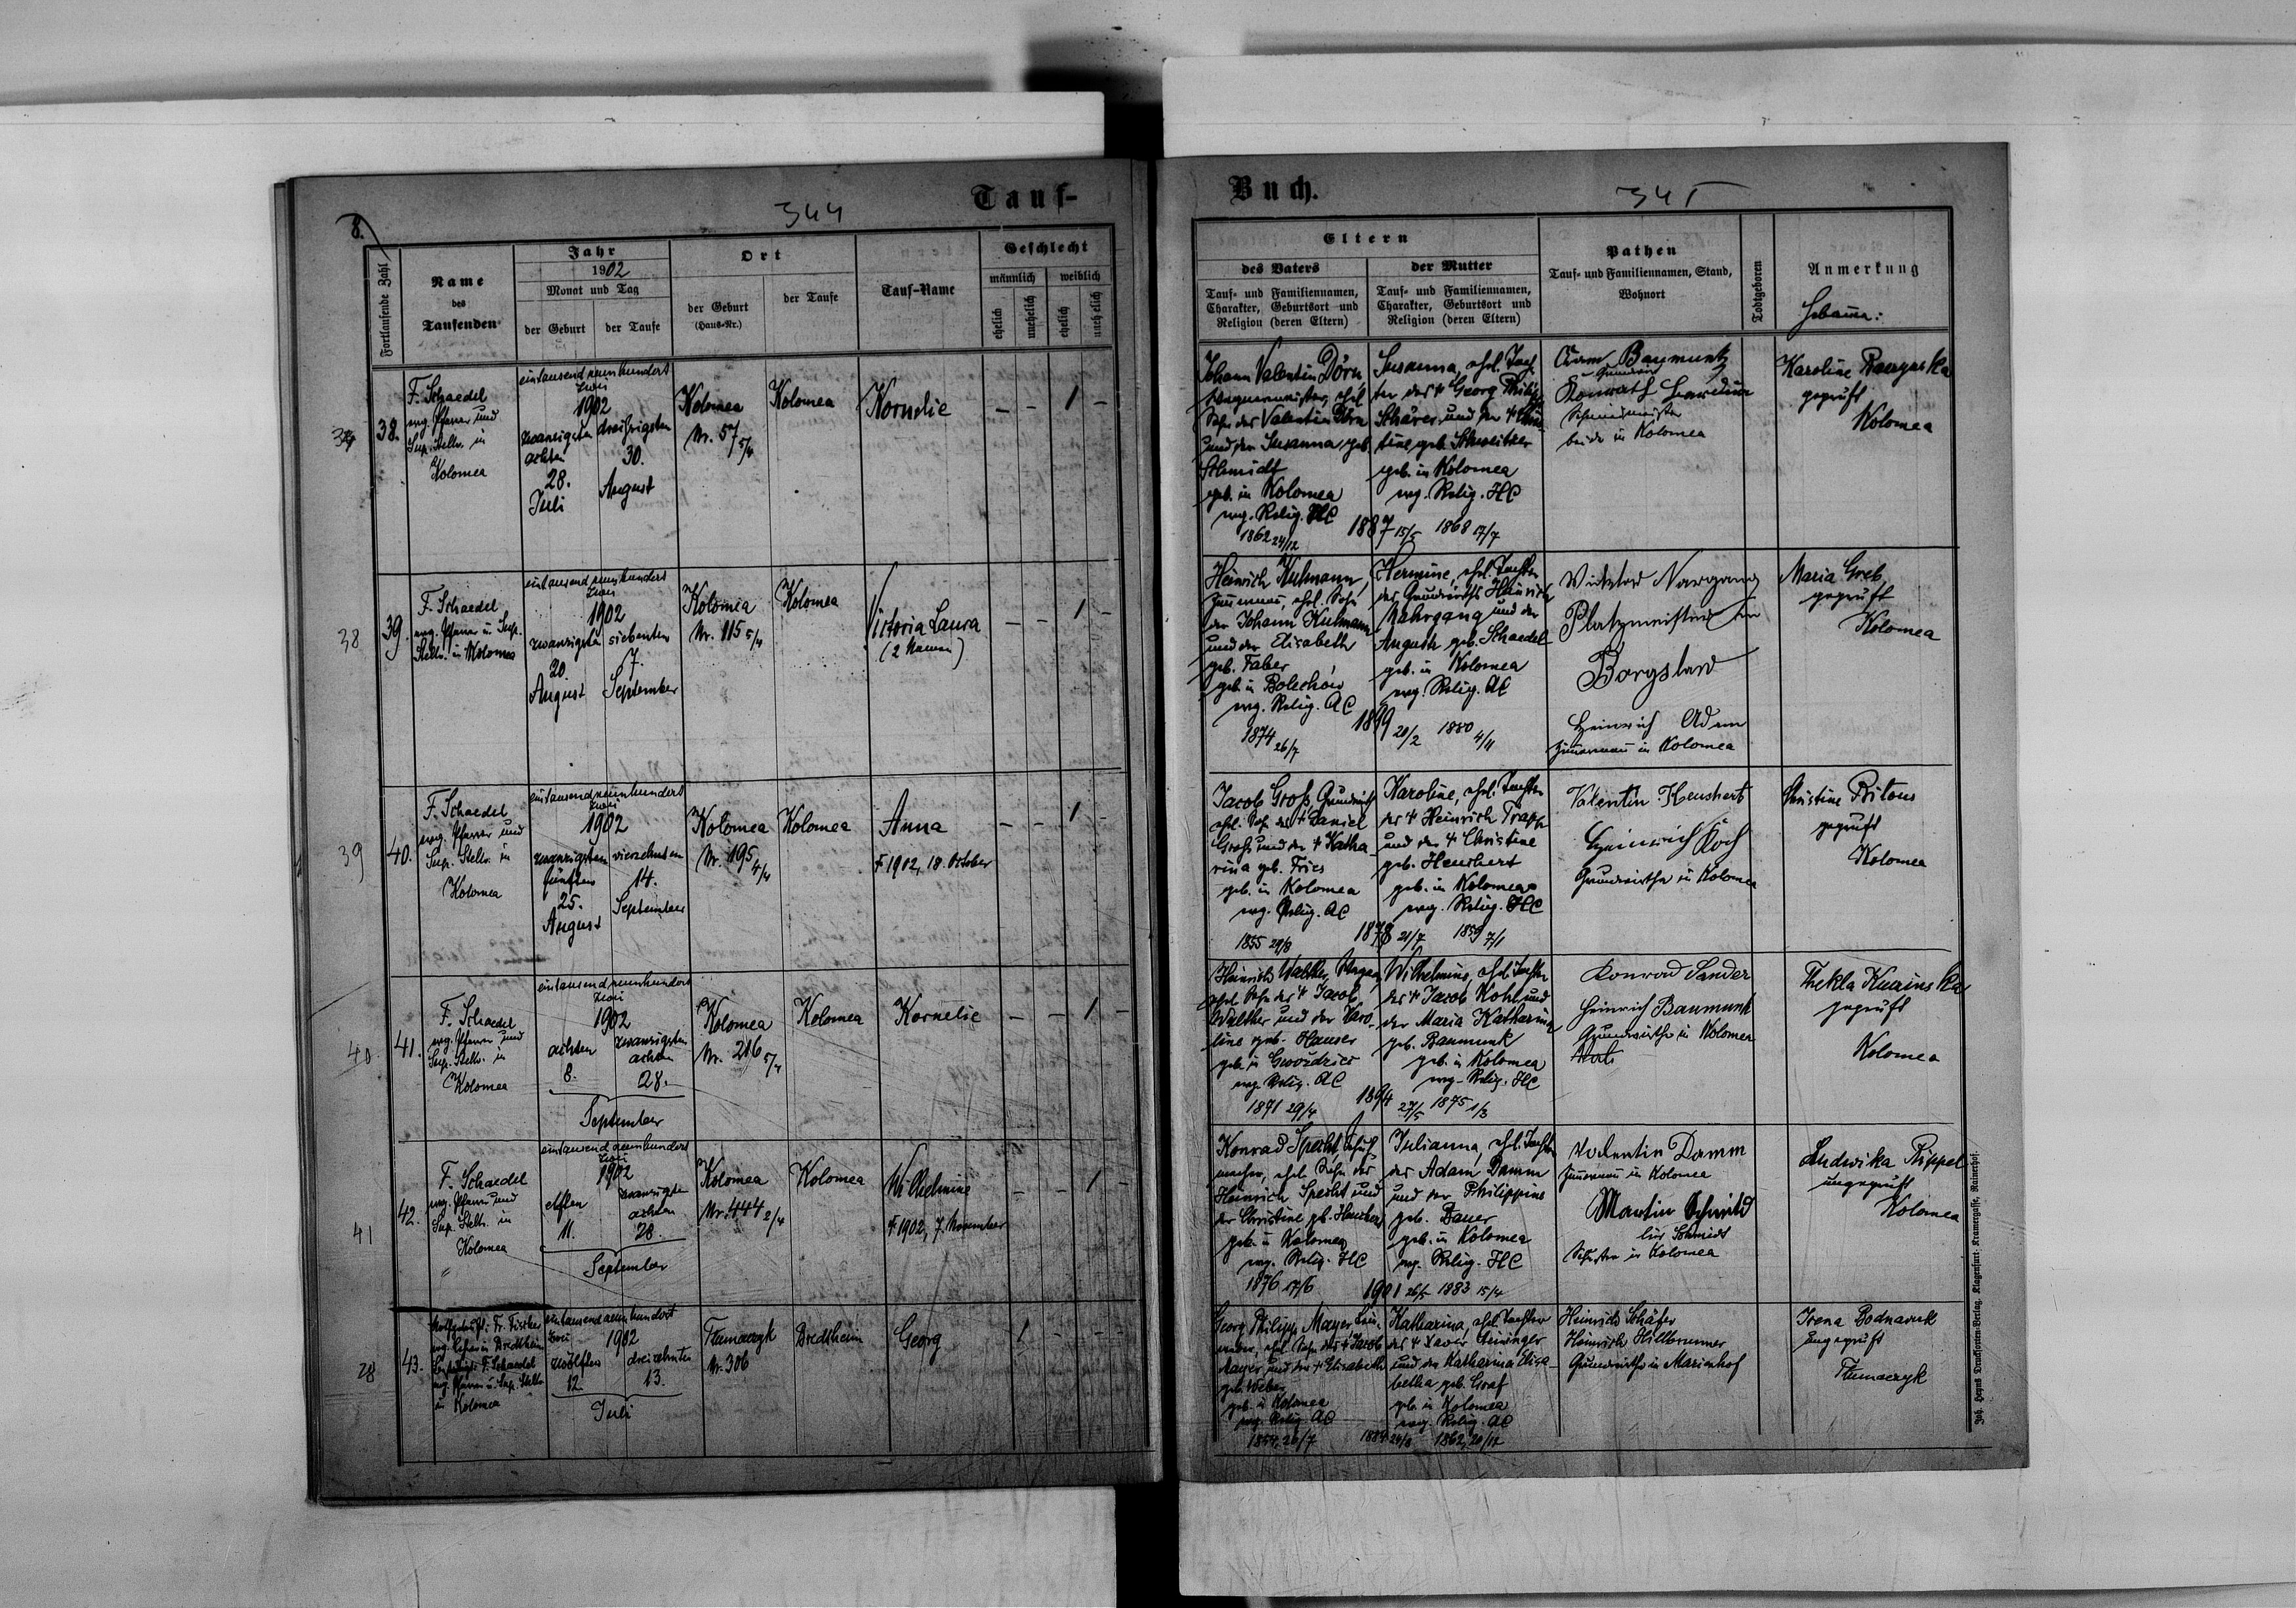 Tauf-
344
8.
Fortlaufende Zahl
Name
des
Taufenden
Jahr
1902
Monat und Tag
der Geburt
der Taufe
Ort
der Geburt
(Haus-Nr.)
der Taufe
Tauf-Name
Geschlecht
männlich
weiblich
ehelich
unehelich
ehelich
unehelich
38.
F. Schaedel
evg. Pfarrer und
Sup. Stellv. in
Kolomea
eintausend neunhundert
zwei
1902
zwanzigsten
achten
28.
Juli
dreißigsten
30.
August
Kolomea
Nr. 57 5/4
Kolomea
Kornelie
– – 1 –
38
39.
F. Schaedel
evg. Pfarrer u. Sup.
Stellv. in Kolomea
eintausend neunhundert
zwei
1902
zwanzigsten
20.
August
siebenten
7.
September
Kolomea
Nr. 115 5/4
Kolomea
Victoria Laura
(2 Namen)
– – 1 –
39
40.
F. Schaedel
evg. Pfarrer und
Sup. Stellv. in
Kolomea
eintausend neunhundert
zwei
1902
zwanzigsten
fünften
25.
August
vierzehnten
14.
September
Kolomea
Nr. 195 4/4
Kolomea
Anna
† 1902, 18. October
– – 1 –
40
41.
F. Schaedel
evg. Pfarrer und
Sup. Stellv. in
Kolomea
eintausend neunhundert
zwei
1902
achten
8.
zwanzigsten
achten
28.
September
Kolomea
Nr. 216 5/4
Kolomea
Kornelie
– – 1 –
41
42.
F. Schaedel
evg. Pfarrer und
Sup. Stellv. in
Kolomea
eintausend neunhundert
zwei
1902
elften
11.
zwanzigsten
achten
28.
September
Kolomea
Nr. 444 2/4
Kolomea
Wilhelmine
† 1902, 7. November
– – 1 –
28
43.
Nothgetauft: Fr. Fischer
evg. Lehrer in Bredtheim
F. Schaedel
evg. Pfarrer u. Sup. Stellv.
in Kolomea
eintausend neunhundert
zwei
1902
zwölften
12.
dreizehnten
13.
Juli
Tłumaczyk
Nr. 306
Bredtheim
Georg
1 – – –
Buch.
345
Eltern
des Vaters
Tauf- und Familiennamen,
Charakter, Geburtsort und
Religion (deren Eltern)
der Mutter
Tauf- und Familiennamen,
Charakter, Geburtsort und
Religion (deren Eltern)
Pathen
Tauf- und Familiennamen, Stand,
Wohnort
Todtgeboren
Anmerkung
Hebamme:
Johann Valentin Dörn,
Wagnermeister, ehel.
Sohn des Valentin Dörn
und der Susanna geb.
Schmidt
geb. in Kolomea
evg. Relig. HC
1862 24/12
1887 15/5
Susanna, ehel. Toch-
ter des † Georg Philipp
Schärer und der † Chris-
tine, geb. Schweitzer
geb. in Kolomea
evg. Relig. HC
1868 17/7
Adam Baumunk
Konrath
Schmiedmeister
beide in Kolomea
Karoline
geprüft
Kolomea
Heinrich Kulmann,
Zimmermann, ehel. Sohn
des Johann Kulmann
und der Elisabeth
geb. Faber
geb. in Bolechów
evg. Relig. AC
1874 26/7
1899 20/2
Hermine, ehel. Tochter
des Grundwirths Heinrich
Nahrgang und der
Auguste geb. Schaedel
geb. in Kolomea
evg. Relig. AC
1880 4/11
Victor Nargang
Platzmeister in
Boryslaw
Heinrich Adam
Zimmermann in Kolomea
Maria Greb,
geprüft
Kolomea
Jacob Groß, Grundwirth
ehel. Sohn des † Daniel
Groß und der † Katha-
rina geb. Fries
geb. in Kolomea
evg. Relig. AC
1855 29/8
1878 21/7
Karoline, ehel. Tochter
des † Heinrich Trapp
und der † Christine
geb. Heuchert
geb. in Kolomea
evg. Relig. HC
1859 7/1
Valentin Heuchert
Heinrich Koch
Grundwirthe in Kolomea
Christine Bitons
geprüft
Kolomea
Heinrich Walther,
ehel. Sohn des † Jacob
Walther und der Karo-
line geb. Hauser
geb. in Gwoździec
evg. Relig. AC
1871 29/4
1894 27/5
Wilhelmine, ehel. Tochter
des † Jacob Kohl und
der Maria Katharina
geb. Baumunk
geb. in Kolomea
evg. Relig. HC
1875 1/3
Konrad Sander
Heinrich Baumunk
Grundwirthe in Kolomea
Thekla
geprüft
Kolomea
Konrad Specht, Schuh-
macher, ehel. Sohn des
Heinrich Specht und
der Christine geb. Heuchert
geb. in Kolomea
evg. Relig. HC
1876 17/6
1901 26/5
Julianna, ehel. Tochter
des Adam Damm
und der Philippine
geb. Bauer
geb. in Kolomea
evg. Relig. HC
1883 15/4
Valentin Damm
Zimmermann in Kolomea
Martin Schmid
Schmidt
Schuster in Kolomea
Ludwika Rippel
ungeprüft
Kolomea
Georg Philipp Mayer
ehel. Sohn des † Jacob
Mayer und der † Elisabeth
geb. Weber
geb. in Kolomea
evg. Relig. AC
1854, 26/7
1884 24/8
Katharina, ehel. Tochter
des † Xaver Steininger
und der Katharina Elisa-
betha geb. Graf
geb. in Kolomea
evg. Relig. AC
1862, 20/12
Heinrich Schäfer
Heinrich Hillbrunner
Grundwirthe in Marienhof
Irena Bodnaruk
ungeprüft
Tłumaczyk
Joh. Heyns Drucksorten-Verlag, Klagenfurt, Kramergasse, Rainerhof.